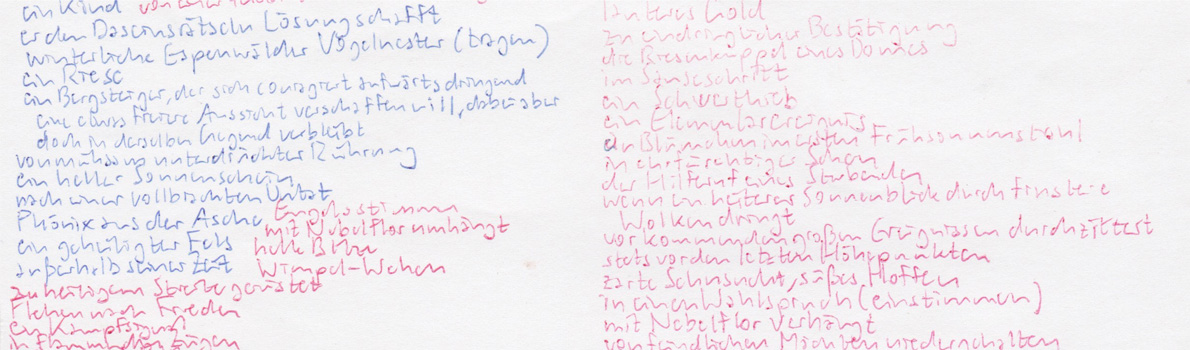 ein Kind von einer
er den Daseinsrätseln Lösung schafft
winterliche Espenwälder Vögelnester (tragen)
ein Riese
ein Bergsteiger, der sich couragiert aufwärts dringend
eine etwas freiere Aussicht verschaffen will, dabei aber
doch in derselben Gegend verbleibt
von mühsam unterdrückter Rührung
ein heller Sonnenschein
nach einer vollbrachten Untat
Phönix aus der Asche
ein geheiligter Fels
außerhalb seiner Zeit
Engelsstimmen
mit Nebelflor umhängt
helle Blitze
Wimpel-Wehen
zu heiligem Streite gerüstet
Flehen nach Frieden
ein Kampfsignal
in flammenden Zügen
lauteres Gold
zu eindringlicher Bestätigung
die Riesenkuppel eines Domes
im Sauseschritt
ein Schwerthieb
ein Elementarereignis
ein Blümchen im ersten Frühsonnenstrahl
in ehrfürchtiger Scheu
der Hilferuf eines Sterbenden
wenn ein heiterer Sonnenblick durch finstere
Wolken dringt
vor kommenden großen Ereignissen durchzittert
stets vor den letzten Höhepunkten
zarte Sehnsucht, süßes Hoffen
in einen Wahlspruch (einstimmen)
mit Nebelflor verhängt
von feindlichen Mächten niederhalten